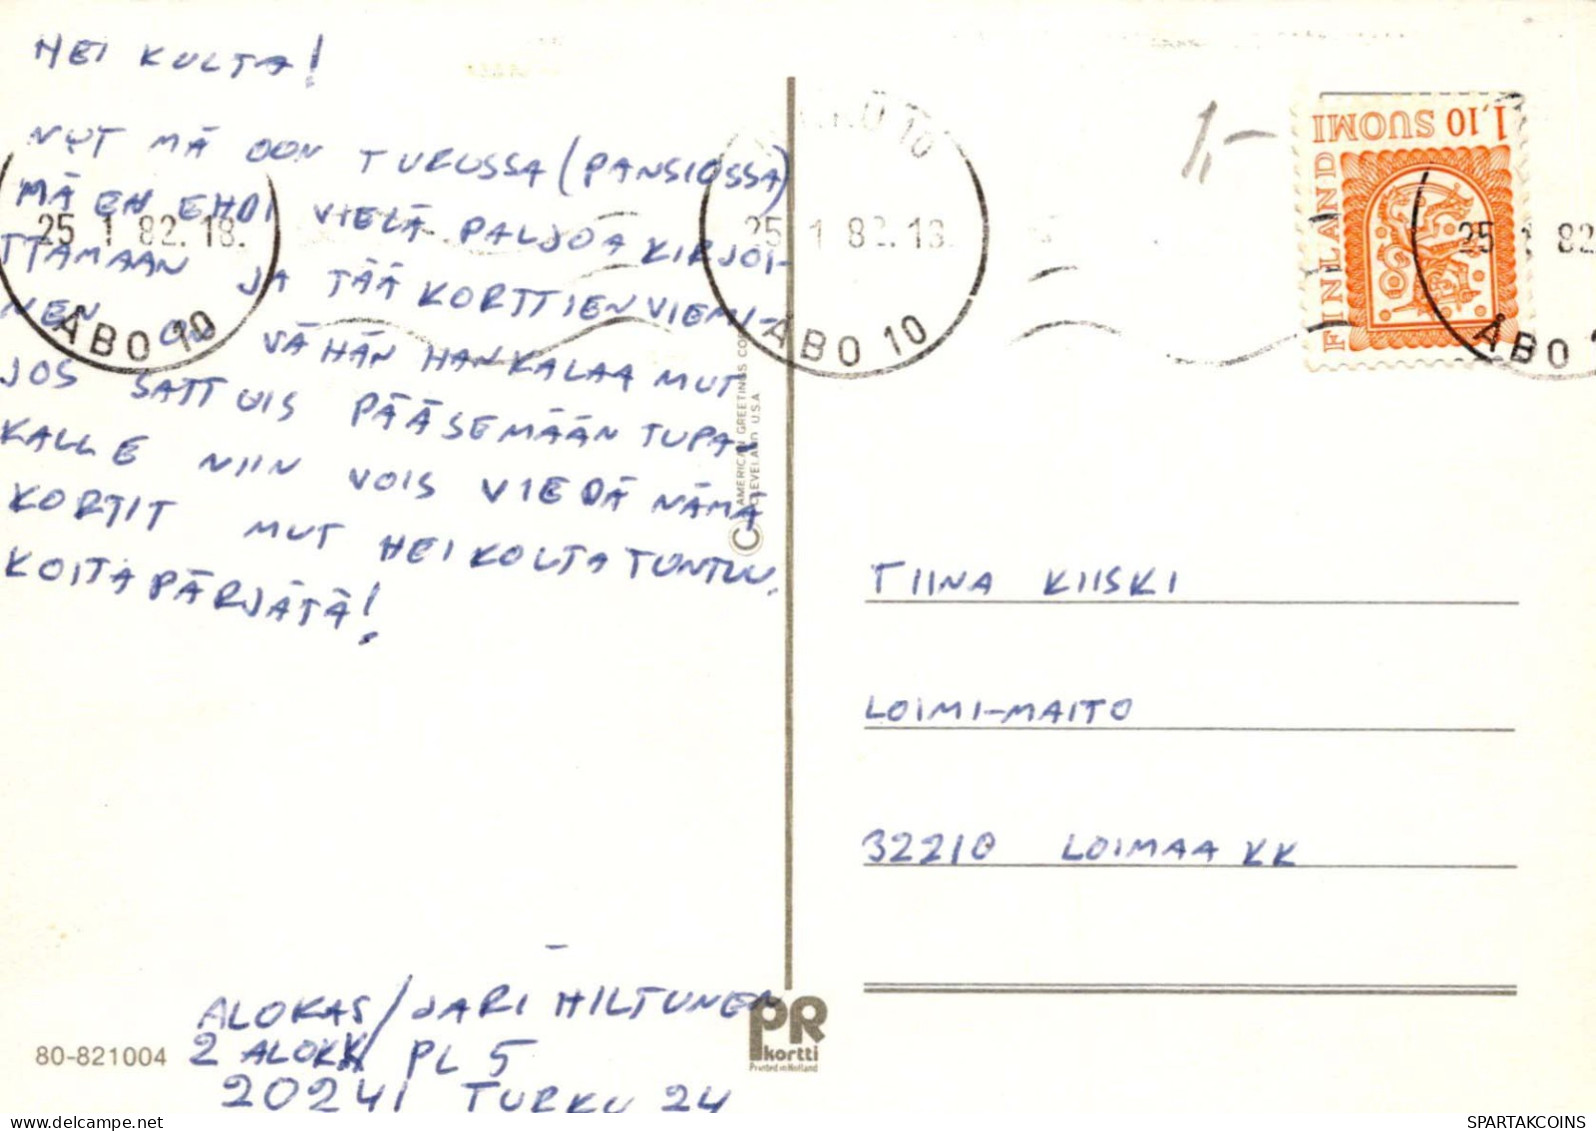 HEI KULTA!
NYT MÄ OON TURUSSA (PANSIOSSA)
MÄ EN EHDI VIELÄ PALJOA KIRJOI-
TTAMAAN JA TÄÄ KORTTIEN VIEMI-
NEN ON VÄHÄN HANKALAA MUT
JOS SATTUIS PÄÄSEMÄÄN TUPA-
KALLE NIIN VOIS VIEDÄ NÄMÄ
KORTIT MUT HEI KOLTA TUNTUU.
KOITA PÄRJÄTÄ!
25 1 82.18.
ÅBO 10
TURKU 10
25 1 82.18.
ÅBO 10
1,-
1,10 SUOMI
FINLAND
25 1 82
ÅBO 1
© AMERICAN GREETINGS CO
CLEVELAND U.S.A.
TIINA KIISKI
LOIMI-MAITO
32210 LOIMAA KK
ALOKAS/JARI HILTUNEN
2 ALOKK PL 5
20241 TURKU 24
80-821004
PR
kortti
Printed in Holland
SPARTAKCOINS
https://www.delcampe.net